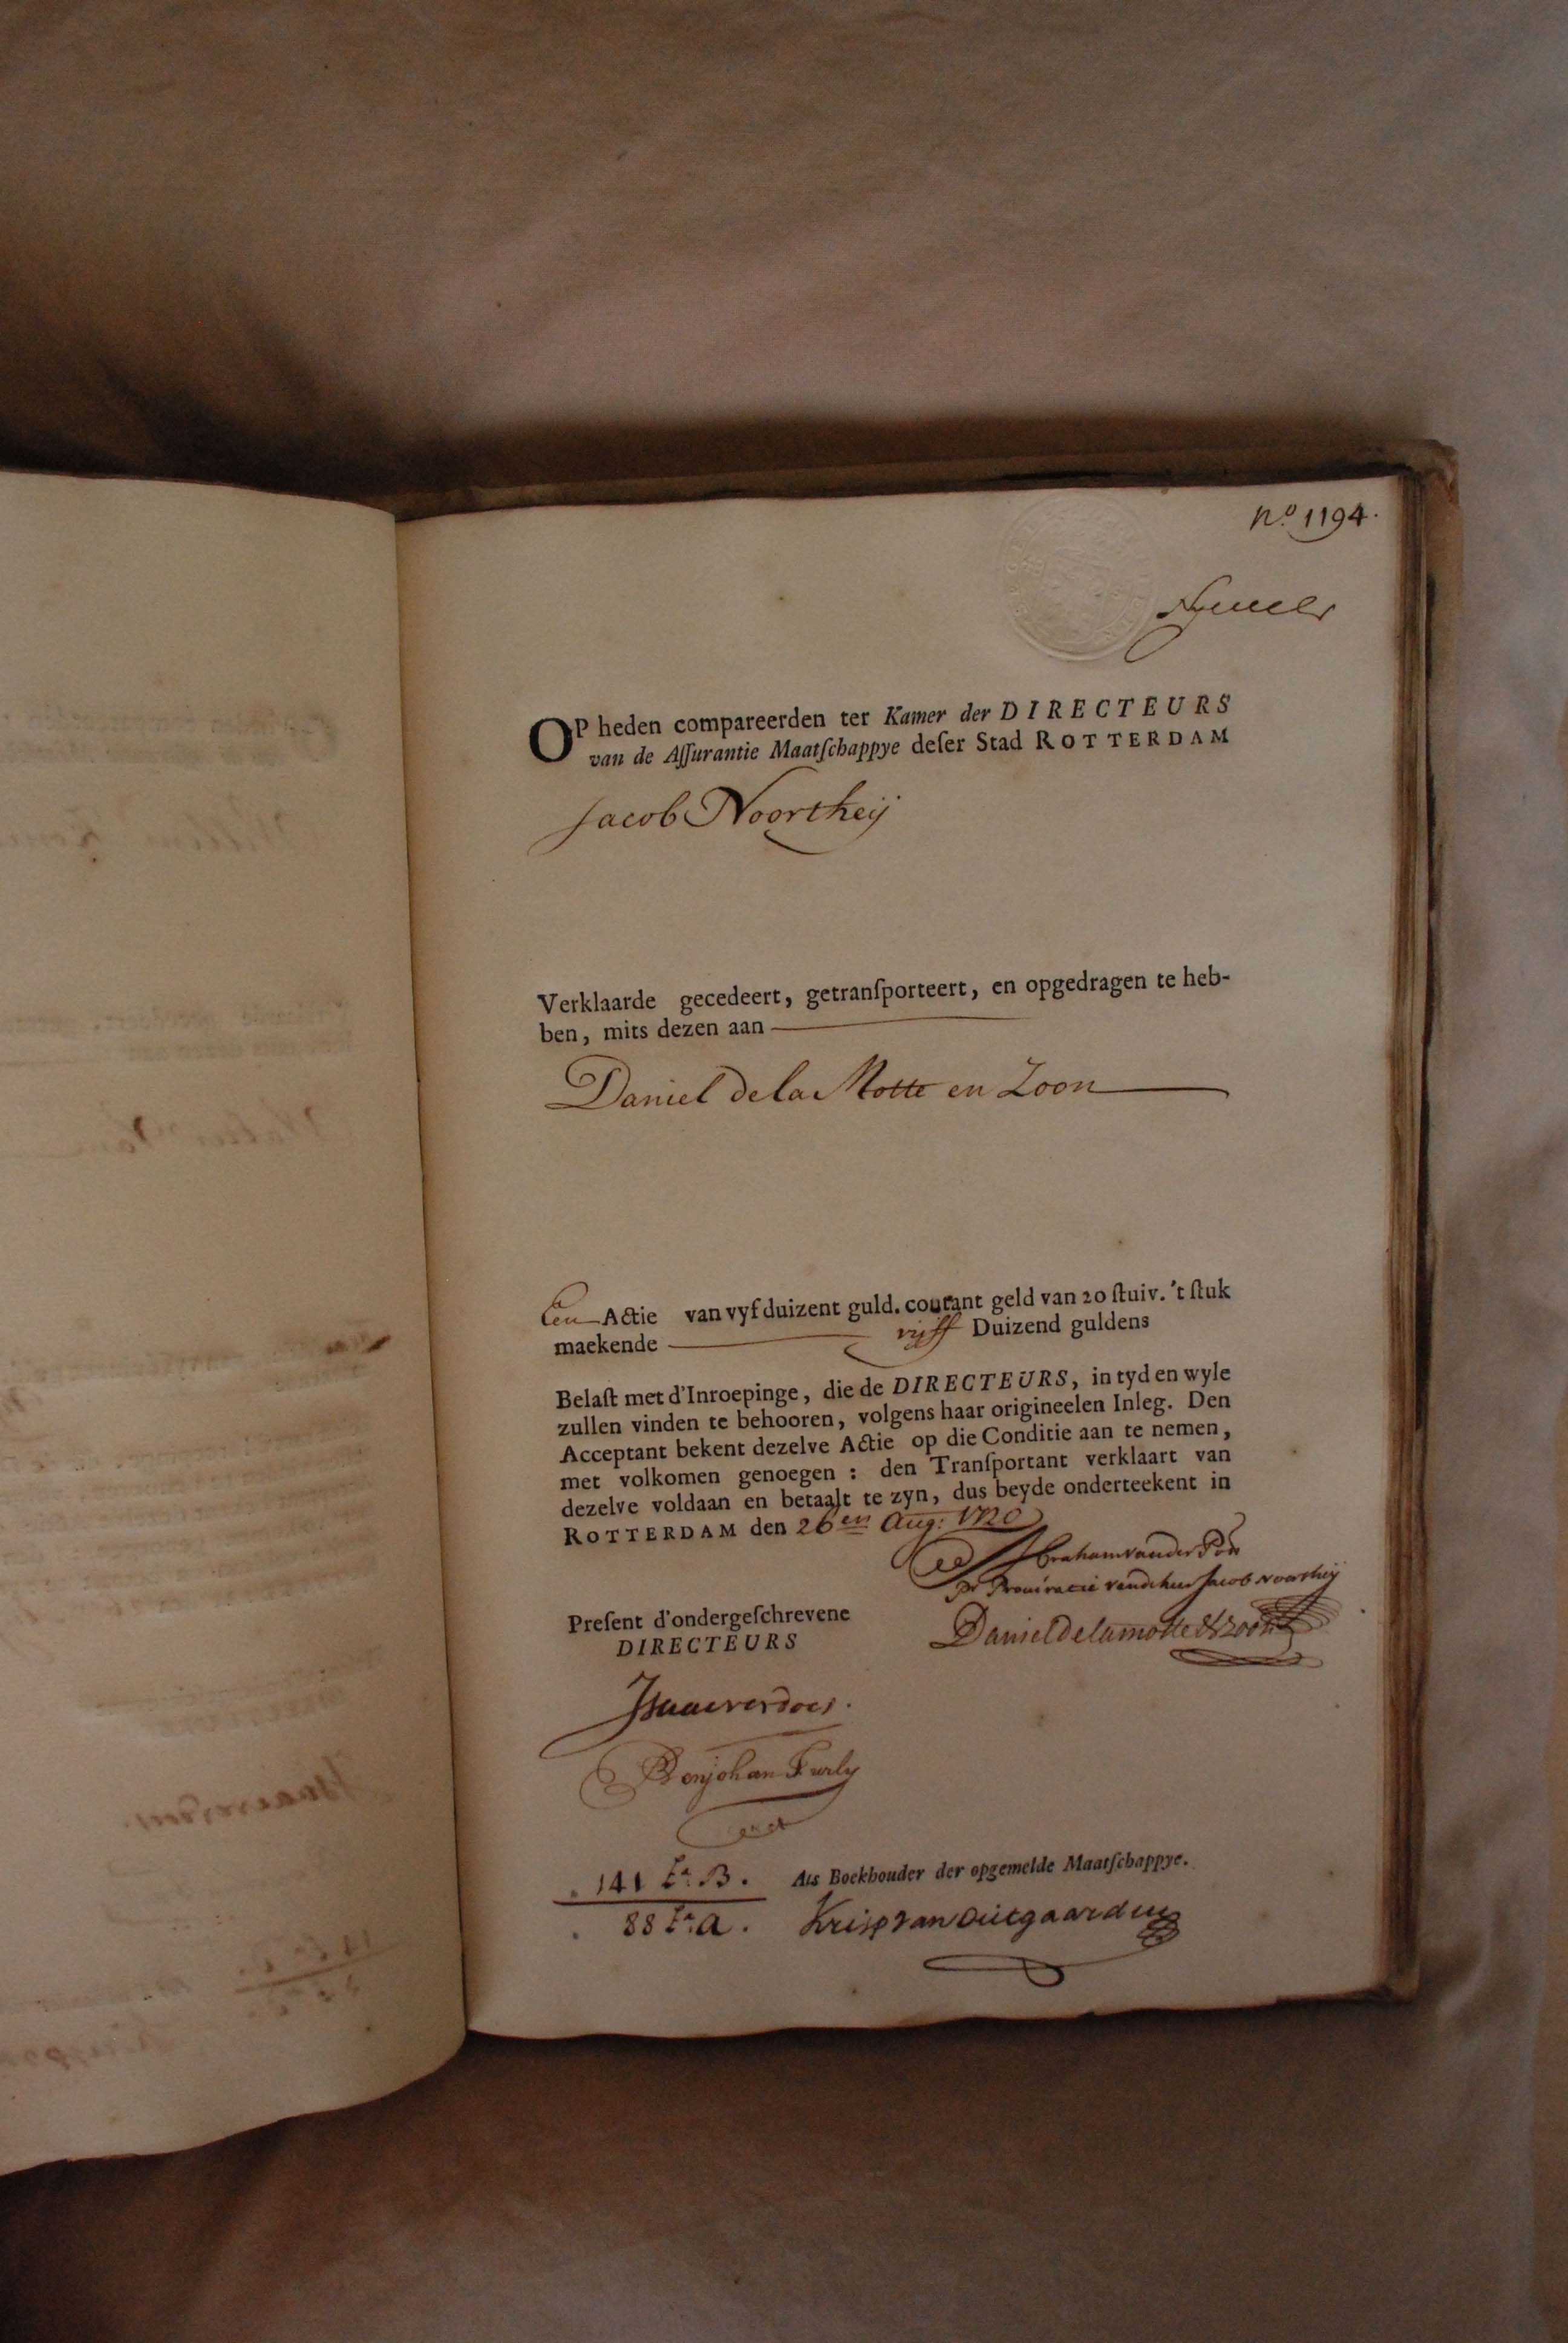 No. 1194.
OP heden compareerden ter Kamer der DIRECTEURS
van de Aſſurantie Maatſchappye deſer Stad ROTTERDAM
Jacob Noortheij
Verklaarde gecedeert, getranſporteert, en opgedragen te heb-
ben, mits dezen aan
Daniel de la Motte en Zoon
Een Actie van vyf duizent guld. courant geld van 20 ſtuiv. 't ſtuk
maekende vijff Duizend guldens
Belaſt met d'Inroepinge, die de DIRECTEURS, in tyd en wyle
zullen vinden te behooren, volgens haar origineelen Inleg. Den
Acceptant bekent dezelve Actie op die Conditie aan te nemen,
met volkomen genoegen : den Tranſportant verklaart van
dezelve voldaan en betaalt te zyn, dus beyde onderteekent in
ROTTERDAM den 26en Aug: 1720
Abraham vander
Jacob Noortheij
Preſent d'ondergeſchrevene
DIRECTEURS
Daniel de la motte & Zoon
Isaac verdoes.
Benjohan Furly
141 La. B.
Als Boekhouder der opgemelde Maatſchappye.
88 La. A.
Krisp van Outgaarden